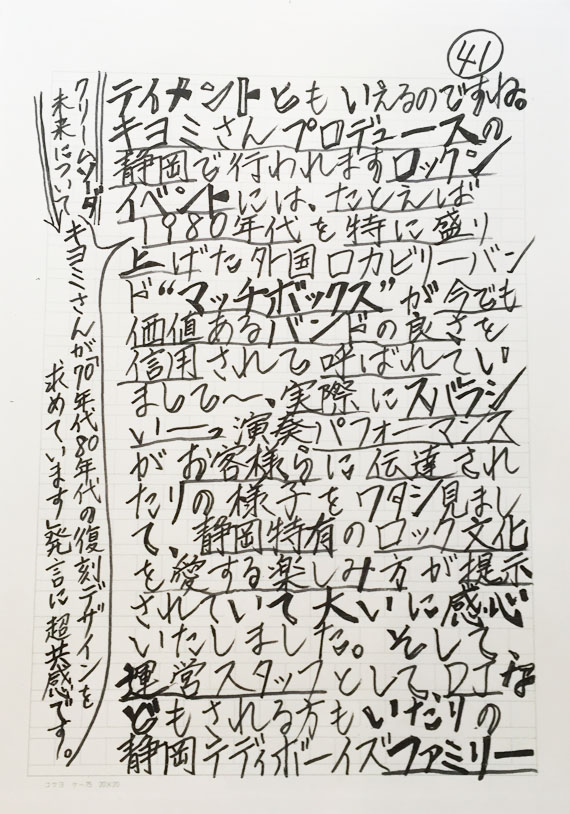 41
テイメントともいえるのですね。
キヨミさんプロデュースの
静岡で行われますロックン
イベントには、たとえば
1980年代を特に盛り
上げた外国ロカビリーバン
ド“マッチボックス”が今でも
価値あるバンドの良さを
信用されても呼ばれてい
まして〜、実際にスバラシ
いーュ演奏パフォーマンス
がお客様らに伝達され
たりの様子をワタシ見まし
て、静岡特有のロック文化
を愛する楽しみ方が提示
されていて大いに感心
いたしました。そして、
運営スタッフとしてDJな
どもされる方もいたりの
静岡テディボーイズファミリー
クリームソーダ
未来について、
キヨミさんが「70年代80年代の復刻デザインを
求めています」発言に超共感です。
コクヨ ケー75 20×20